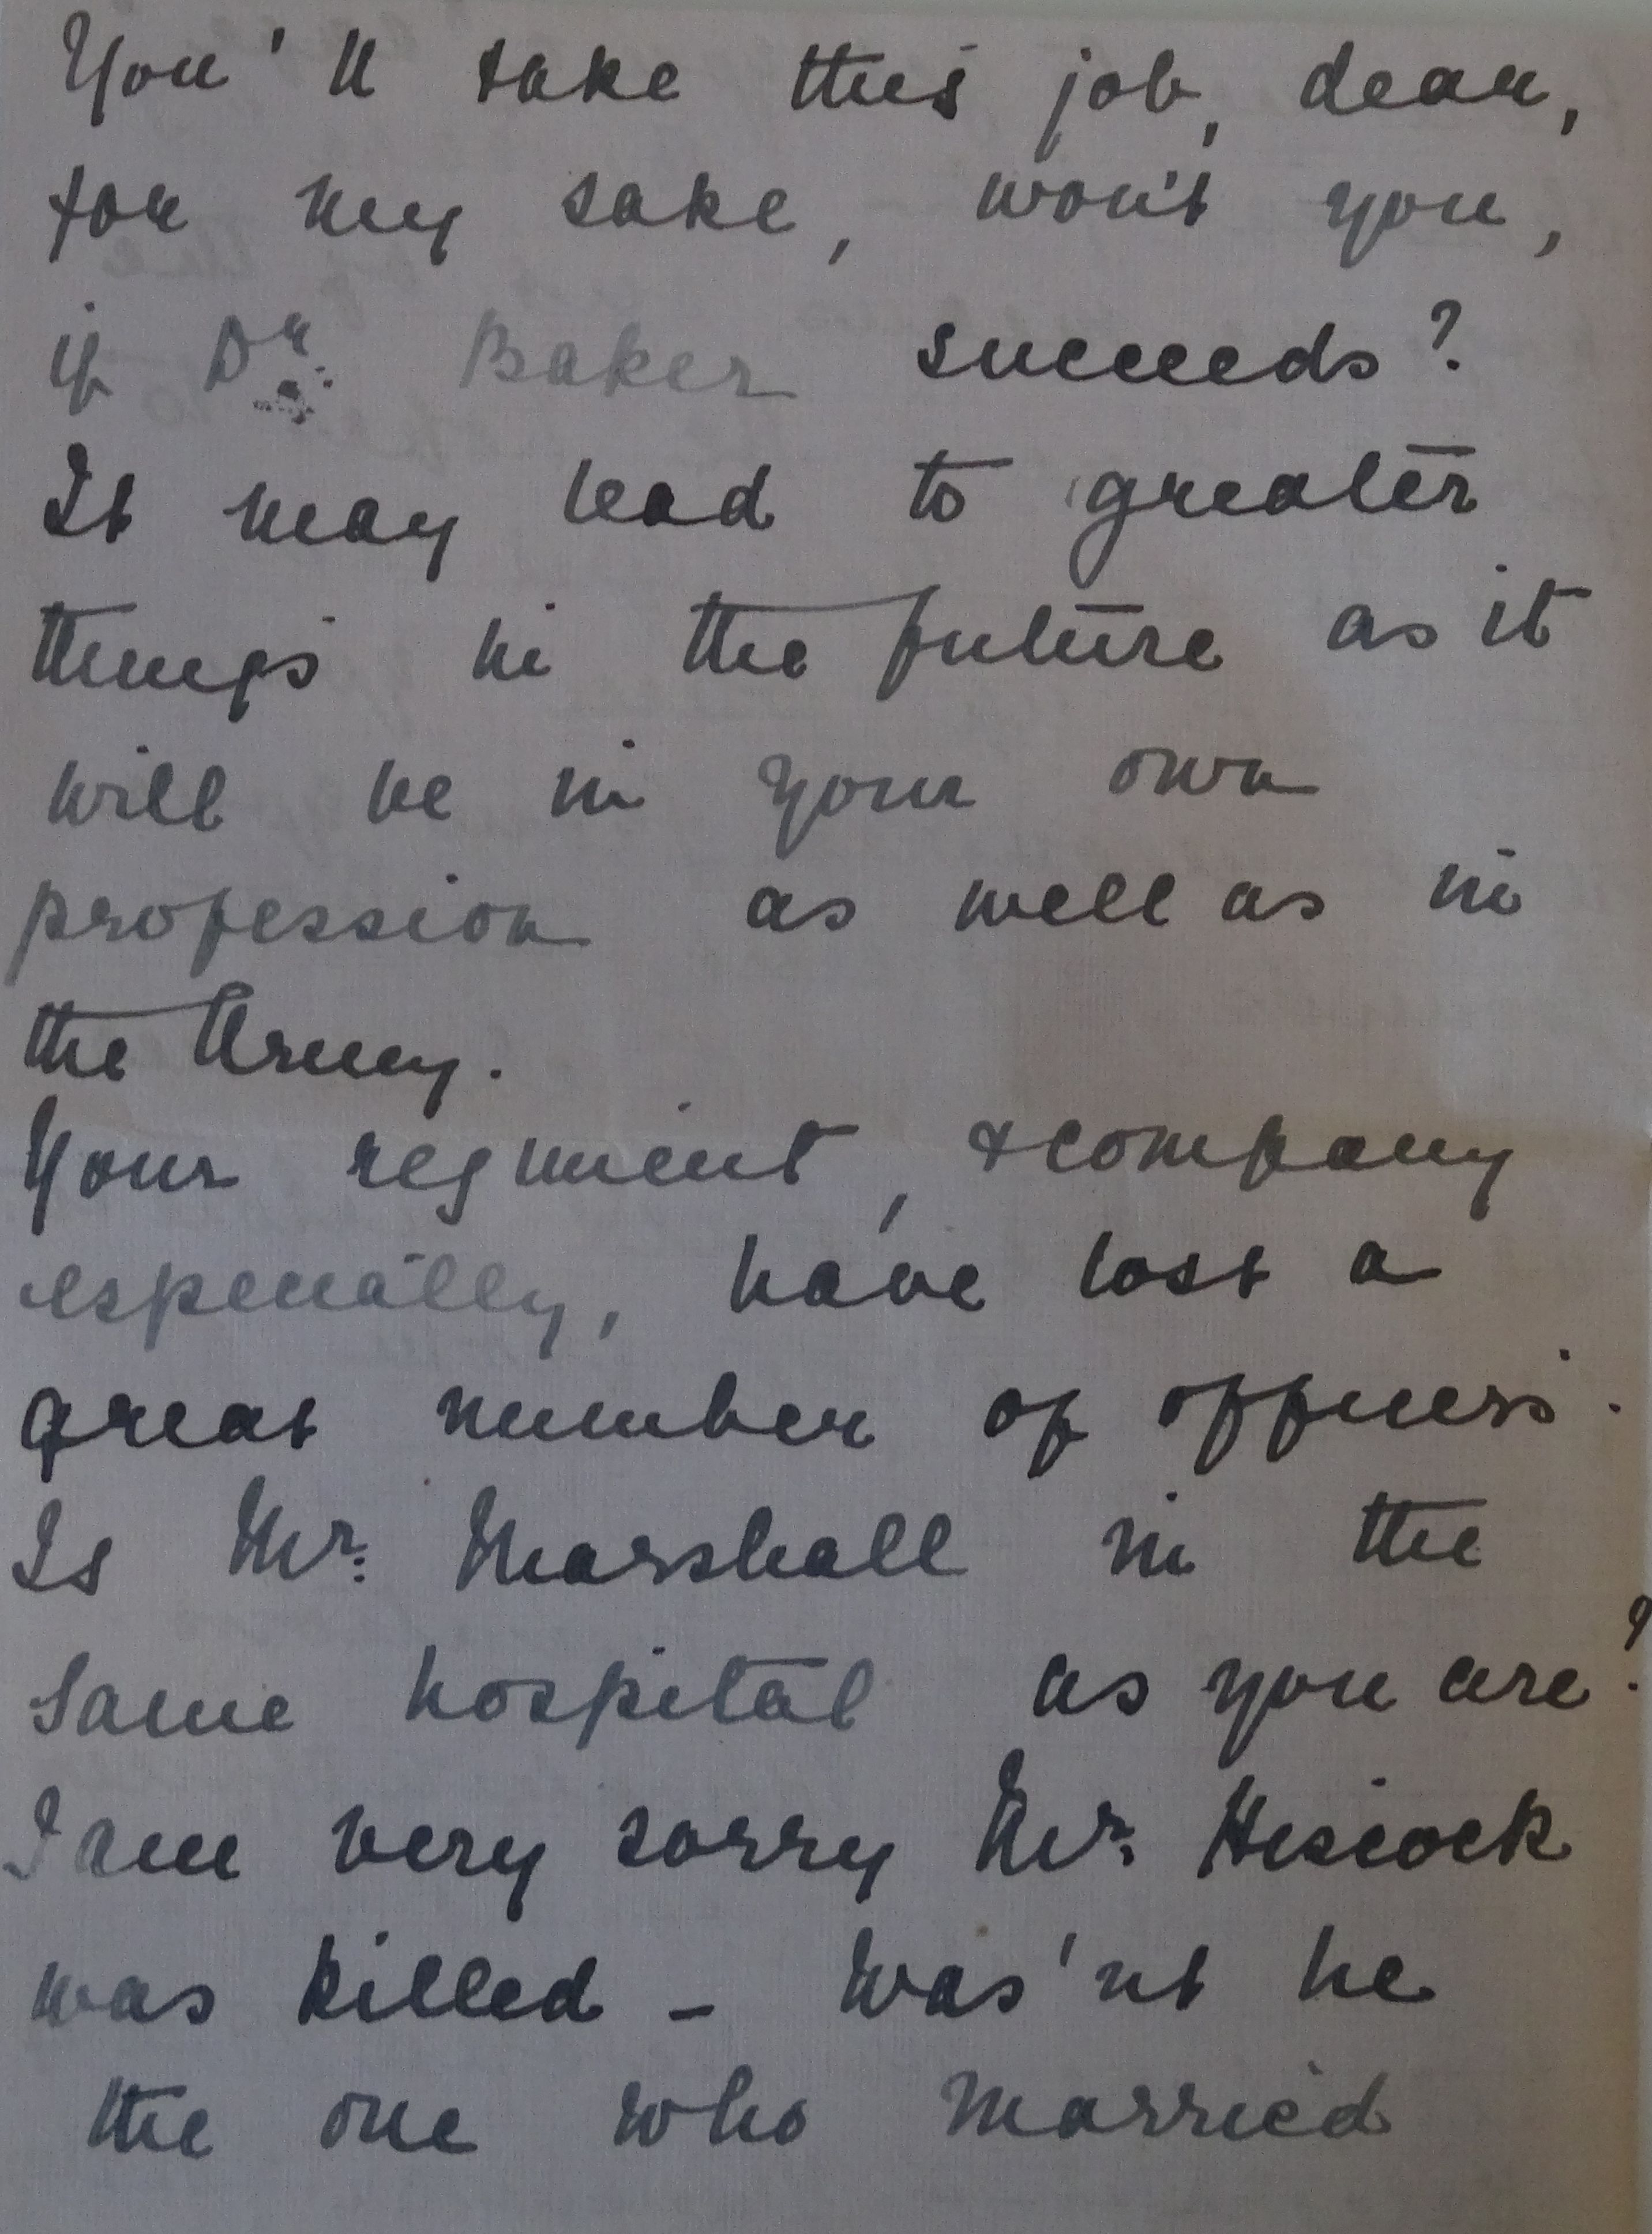 You'll take this job, dear,
for my sake, won't you,
if Dr. Baker succeeds?
It may lead to greater
things in the future as it
will be in your own
profession as well as in
the Army.
Your regiment, & company
especially, have lost a
great number of officers.
Is Mr. Marshall in the
same hospital as you are?
I am very sorry Mr. Hiscock
was killed – was'nt he
the one who married